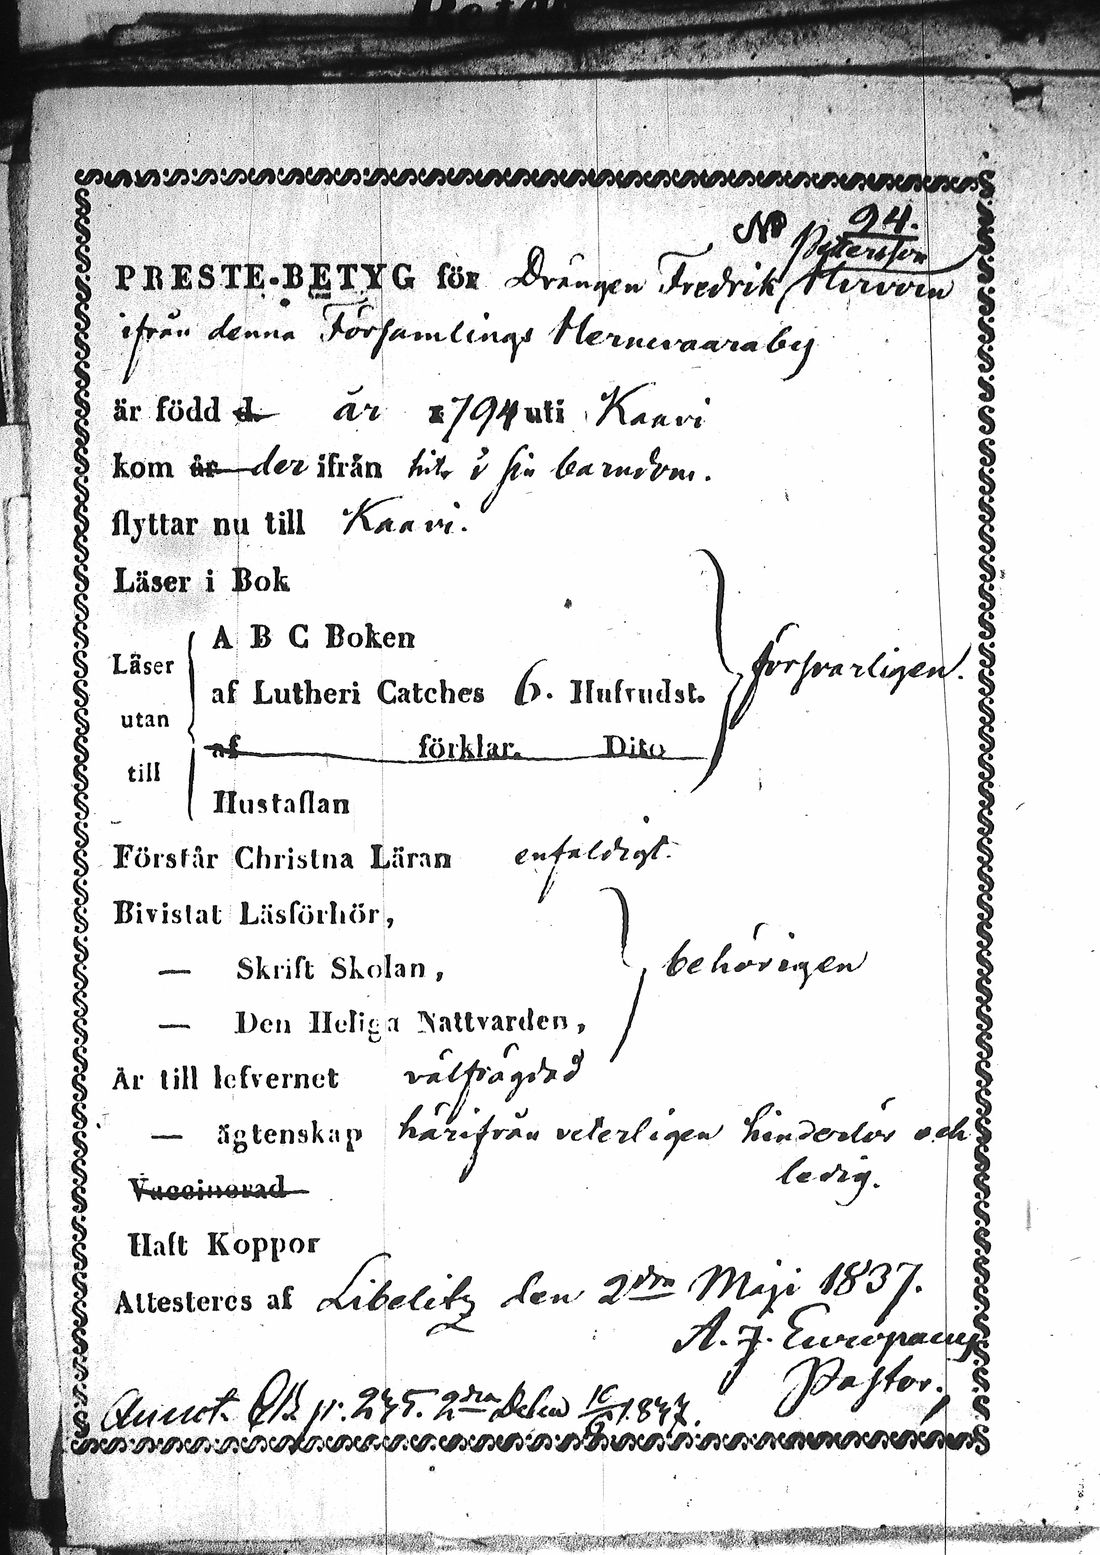 No 94.
Petersson
PRESTE-BETYG för Drängen Fredrik Hirvoin
ifrån denna Församlings Hernevaaraby
är född d. år 1794 uti Kaavi
kom år der ifrån hit i sin barndom.
flyttar nu till Kaavi.
Läser i Bok
A B C Boken
Läser
försvarligen.
af Lutheri Catches 6. Hufvudst.
utan
af förklar. Dito
till
Hustaflan
Förstår Christna Läran enfaldigt.
Bivistat Läsförhör,
— Skrift Skolan, behörigen
— Den Heliga Nattvarden,
Är till lefvernet välfrägdad
— ägtenskap härifrån veterligen hinderlös och
ledig.
Vaccinerad
Haft Koppor
Attesteras af Libelitz den 2dra Maji 1837.
A. J. Europaeus
Pastor.
Annot. p. 275. 2dra Delen 1837.